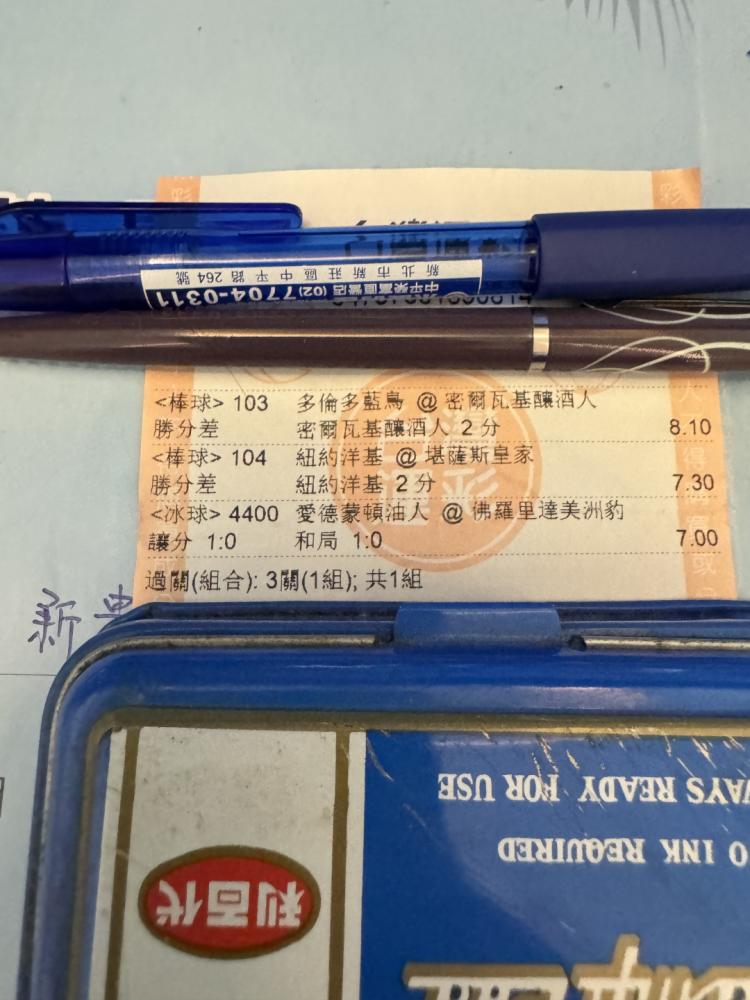 新北市新莊區中平路264號
中平樂富直營店 (02)7704-0311
<棒球> 103 多倫多藍鳥 @ 密爾瓦基釀酒人
勝分差 密爾瓦基釀酒人 2 分 8.10
<棒球> 104 紐約洋基 @ 堪薩斯皇家
勝分差 紐約洋基 2 分 7.30
<冰球> 4400 愛德蒙頓油人 @ 佛羅里達美洲豹
讓分 1:0 和局 1:0 7.00
過關(組合): 3關(1組); 共1組
新
WAYS READY FOR USE
O INK REQUIRED
利百代